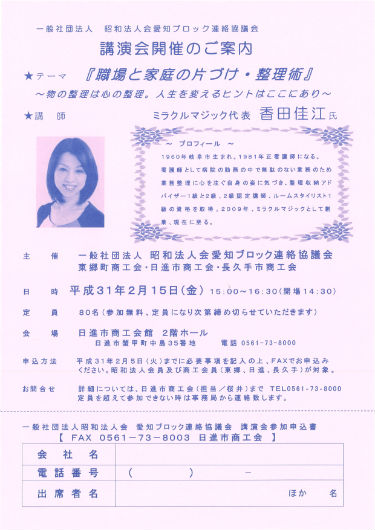 一般社団法人 昭和法人会愛知ブロック連絡協議会
講演会開催のご案内
★テーマ 『職場と家庭の片づけ・整理術』
～物の整理は心の整理。人生を変えるヒントはここにあり～
★講師 ミラクルマジック代表 香田佳江氏
～ プロフィール ～
1960年岐阜市生まれ。1981年正看護師になる。
看護師として病院の勤務の中で無駄のない業務のため
業務整理に心を注ぐ自身の姿に気づき、整理収納アド
バイザー1級と2級、2級認定講師、ルームスタイリスト1
級の資格を取得。2009年、ミラクルマジックとして創
業、現在に至る。
主催 一般社団法人 昭和法人会愛知ブロック連絡協議会
東郷町商工会・日進市商工会・長久手市商工会
日時 平成31年2月15日(金) 15:00～16:30(開場14:30)
定員 80名(参加無料、定員になり次第締め切らせていただきます)
会場 日進市商工会館 2階ホール
日進市蟹甲町中島35番地 電話 0561-73-8000
申込方法 平成31年2月5日(火)までに必要事項を記入の上、FAXでお申込み
ください。昭和法人会員及び商工会員(東郷、日進、長久手)が対象。
お問合せ 詳細については、日進市商工会(担当/桜井)まで TEL0561-73-8000
定員を超えて参加できない時は事務局から連絡致します。
一般社団法人昭和法人会 愛知ブロック連絡協議会 講演会参加申込書
【 FAX 0561-73-8003 日進市商工会 】
会社名
電話番号 ( ) -
出席者名 ほか 名